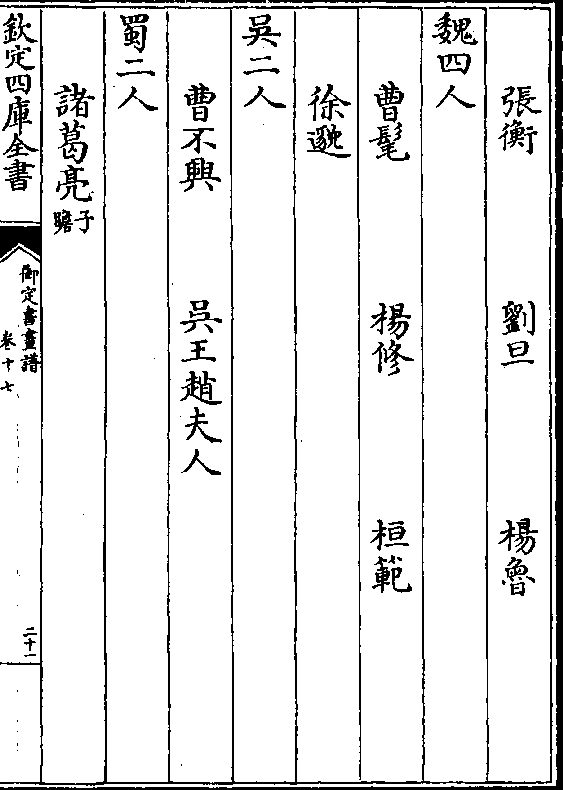 張衡 劉旦 楊魯
魏四人
曹髦 楊修 桓範
徐邈
吳二人
曹不興 吳王趙夫人
蜀二人
諸葛亮 子瞻
欽定四庫全書
御定書畫譜
卷十七
二十一